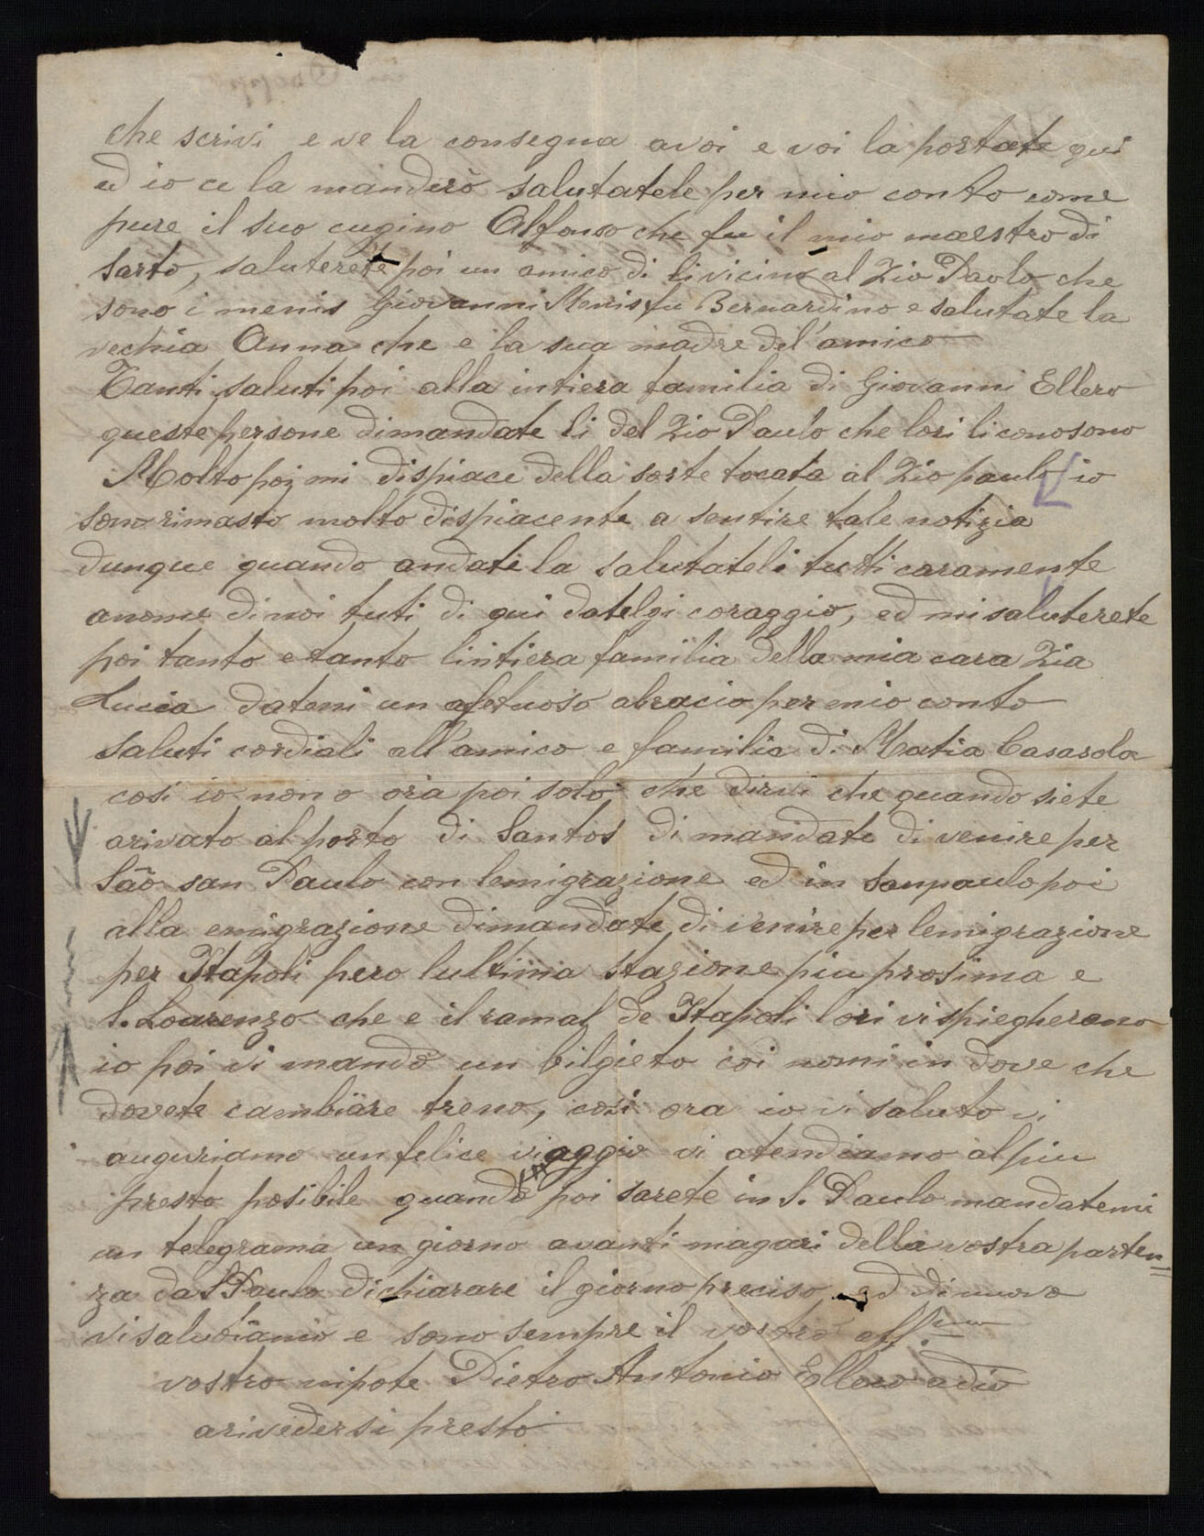 che scrivi e ve la consegna avoi e voi la portate qui
ed io ce la manderò salutatele per mio conto come
pure il suo cugino Alfonso che fu il mio maestro di
sarto, saluterete poi un amico di li vicino al Zio Paolo che
sono i menis Giovanni Menis fu Bernardino e salutate la
vechia Anna che e la sua madre del'amico
Tanti saluti poi alla intiera familia di Giovanni Ellero
queste persone dimandate li del Zio Paulo che lori li conosono
Molto poi mi dispiace della sorte tocata al Zio paulo io
sono rimasto molto dispiacente a sentire tale notizia
dunque quando andate la salutateli tutti caramente
anome di noi tuti di qui datelgi coraggio, ed mi saluterete
poi tanto e tanto lintiera familia della mia cara Zia
Lucia datemi un afetuoso abracio per mio conto
saluti cordiali all'amico e familia di Matia Casasola
cosi io non o ora poi solo che dirvi che quando siete
arivato al porto di Santos dimandate di venire per
São san Paulo con lemigrazione ed in sanpaulo poi
alla emigrazione dimandate di venire per lemigrazione
per Itapoli pero lultima stazione piu prosima e
S. Lourenzo che e il ramal de Itapoli lori vi spiegherano
io poi vi mando un bilgieto coi nomi in dove che
dovete cambiare treno, cosi ora io vi saluto vi
auguriamo un felice viaggio vi atendiamo al piu
presto posibile quando poi sarete in S. Paulo mandatemi
un telegrama un giorno avanti magari della vostra parten=
za da S Paulo dichiarare il giorno preciso, ed di nuovo
vi salutiamo e sono sempre il vostro aff.imo
vostro nipote Pietro Antonio Ellero adio
arivedersi presto